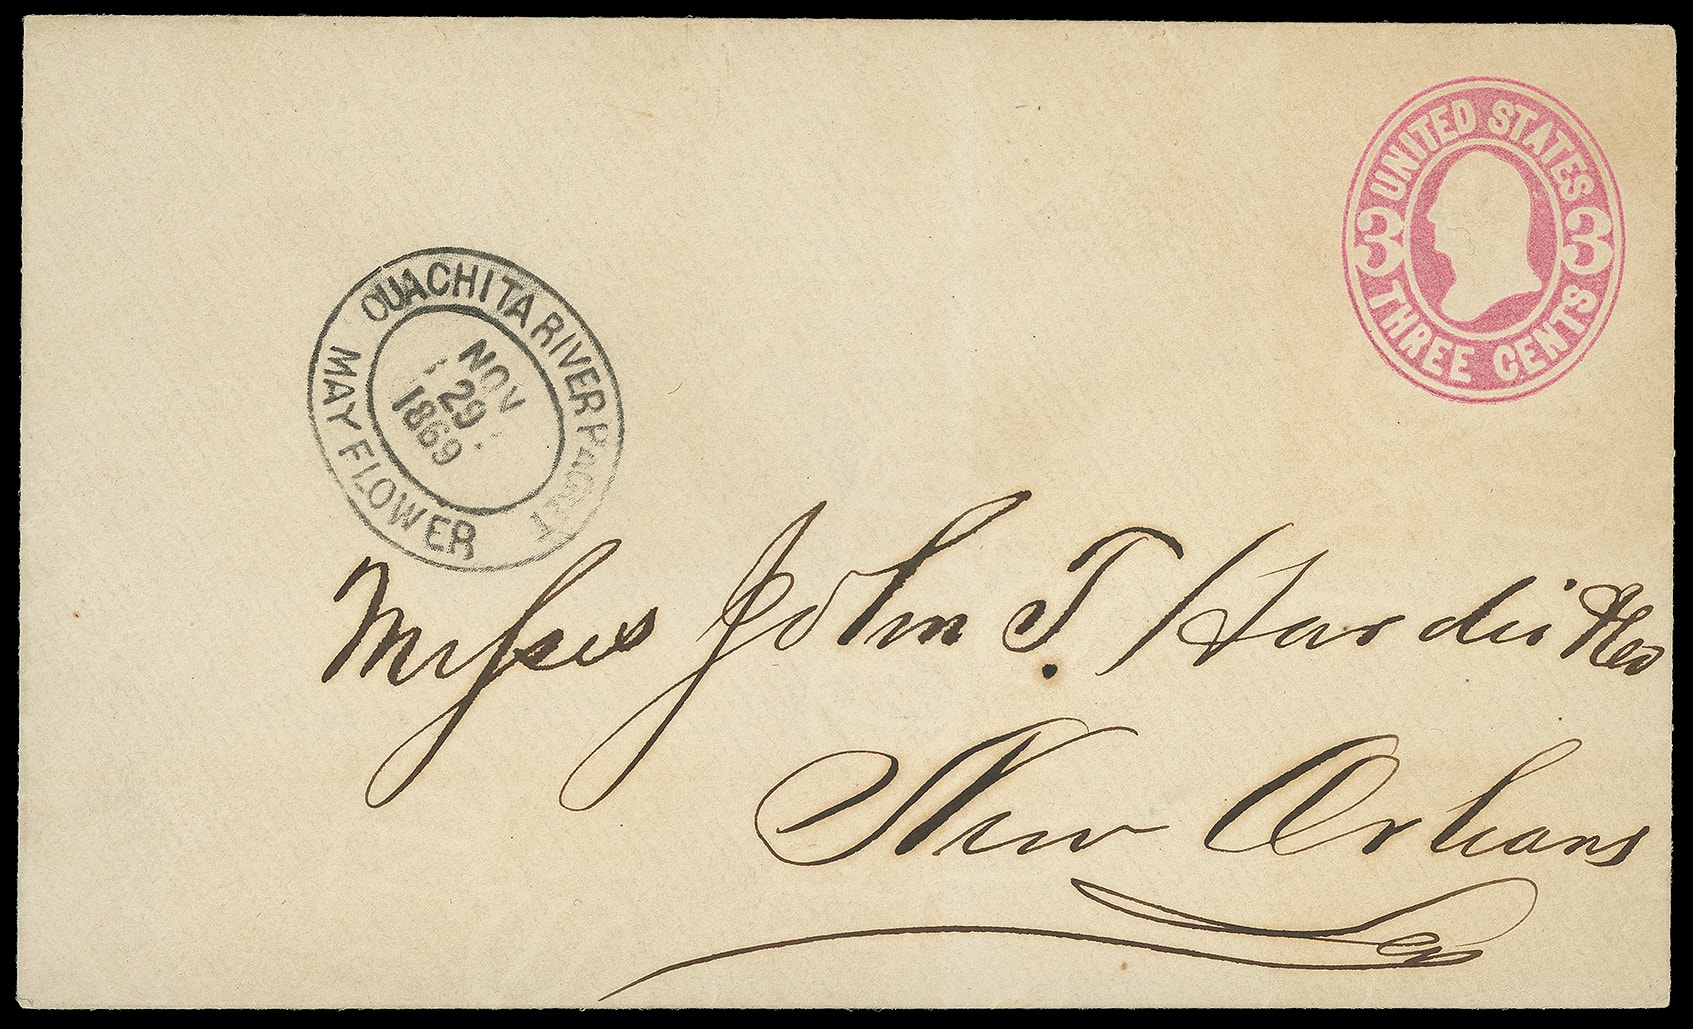 UNITED STATES
3 3
THREE CENTS
OUACHITA RIVER PACKET
NOV
29
1869
MAY FLOWER
Messes John T. Hardie &Co
New Orleans
La